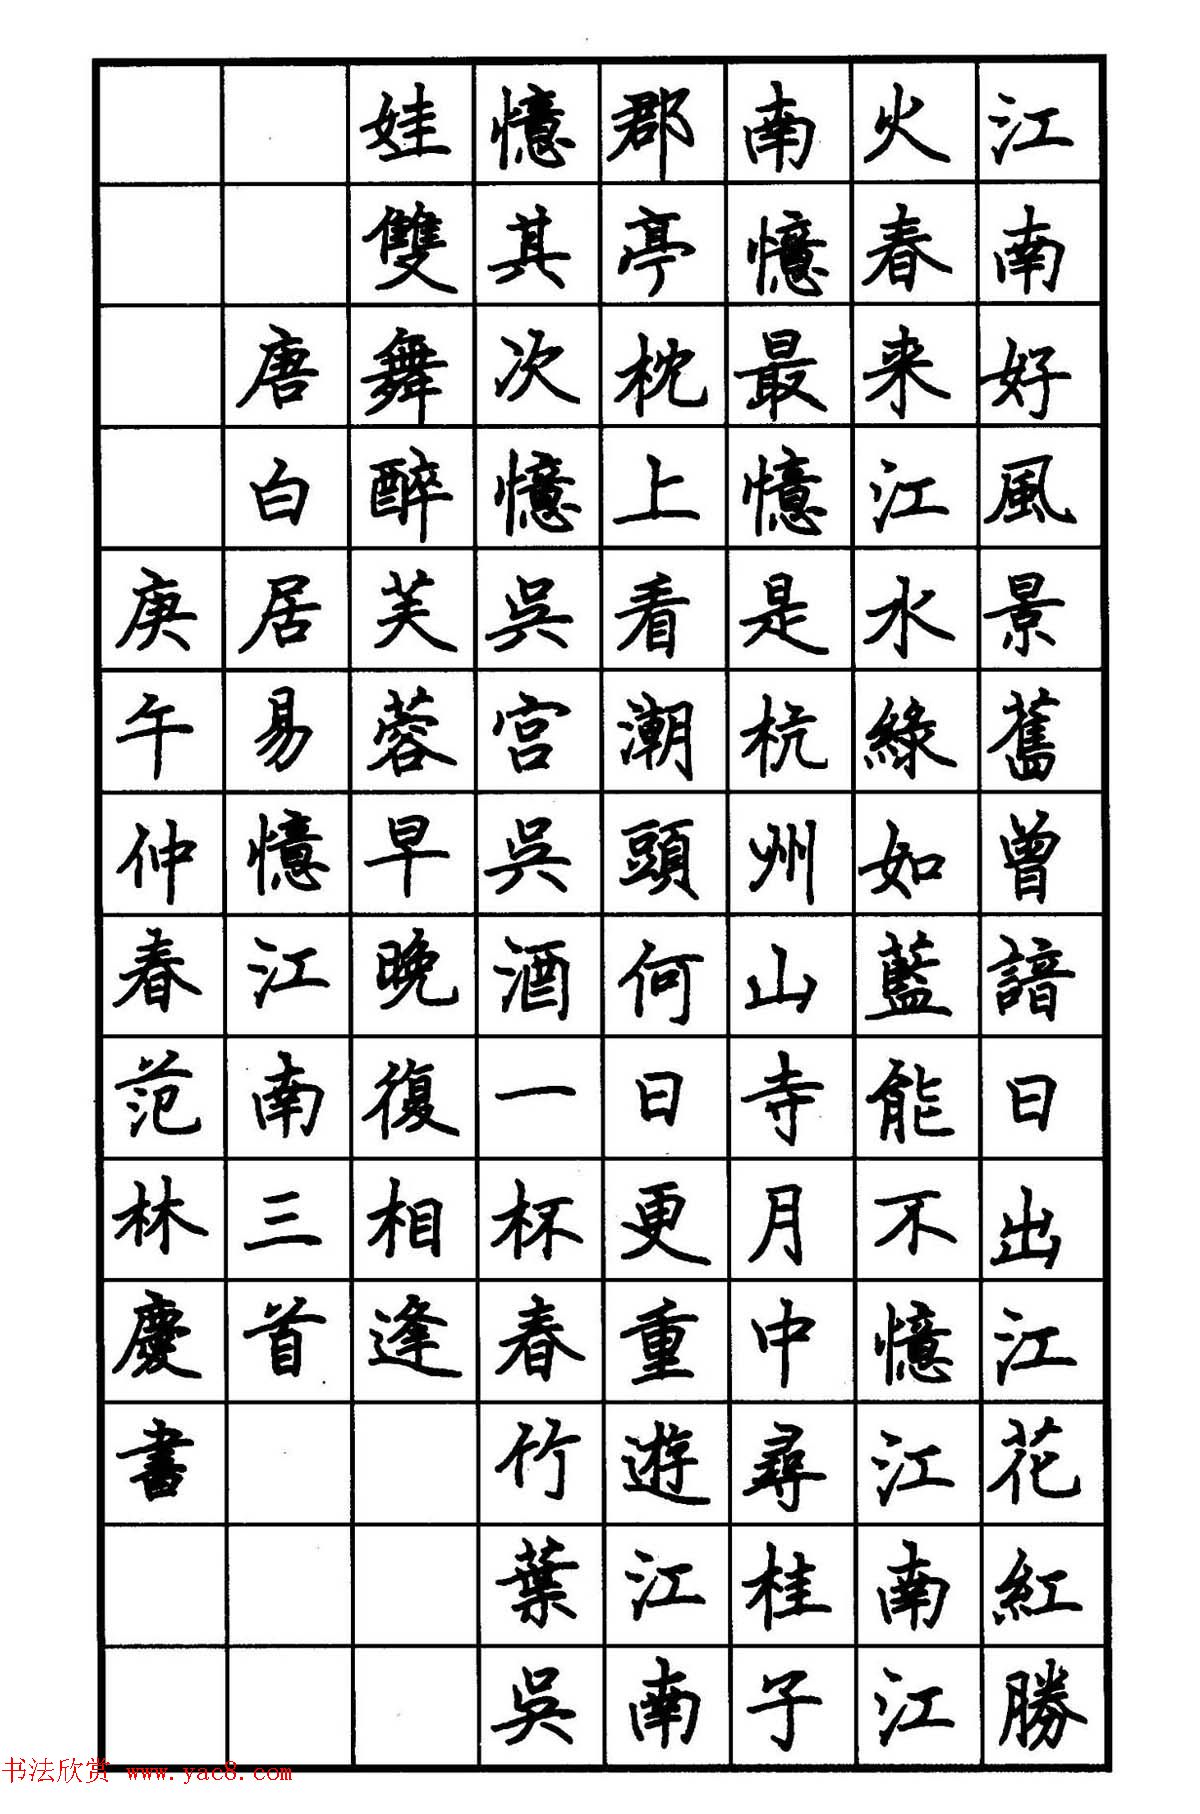 江南好風景舊曾諳日出江花紅勝
火春来江水綠如藍能不憶江南江
南憶最憶是杭州山寺月中尋桂子
郡亭枕上看潮頭何日更重遊江南
憶其次憶吳宮吳酒一杯春竹葉吳
娃雙舞醉芙蓉早晚復相逢
唐白居易憶江南三首
庚午仲春范林慶書
书法欣赏 www.yac8.com